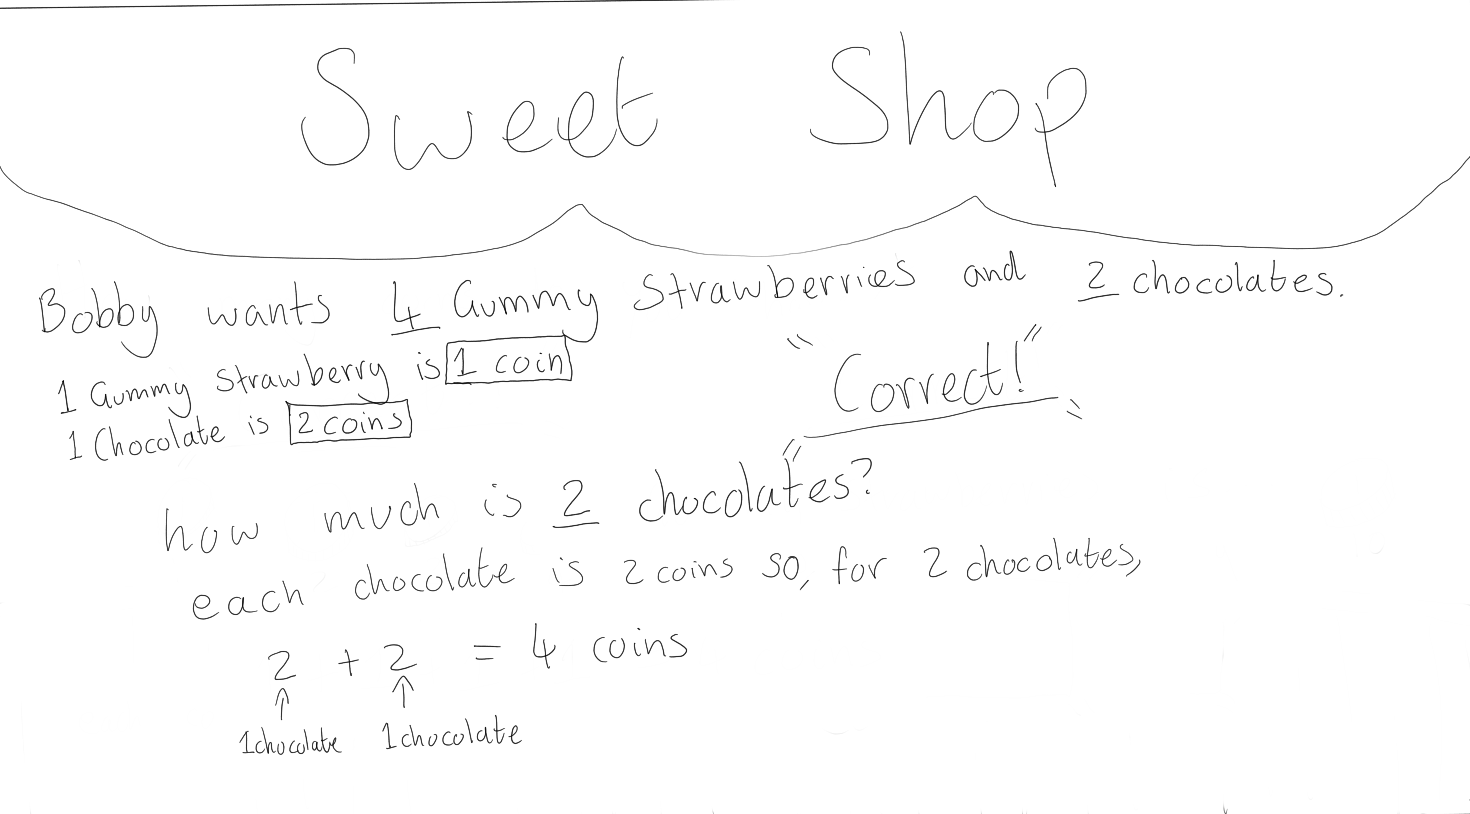 Sweet Shop
Bobby wants 4 Gummy Strawberries and 2 chocolates.
1 Gummy Strawberry is 1 coin
1 Chocolate is 2 coins
"Correct!"
how much is 2 chocolates?
each chocolate is 2 coins so, for 2 chocolates,
2 + 2 = 4 coins
1chocolate 1chocolate